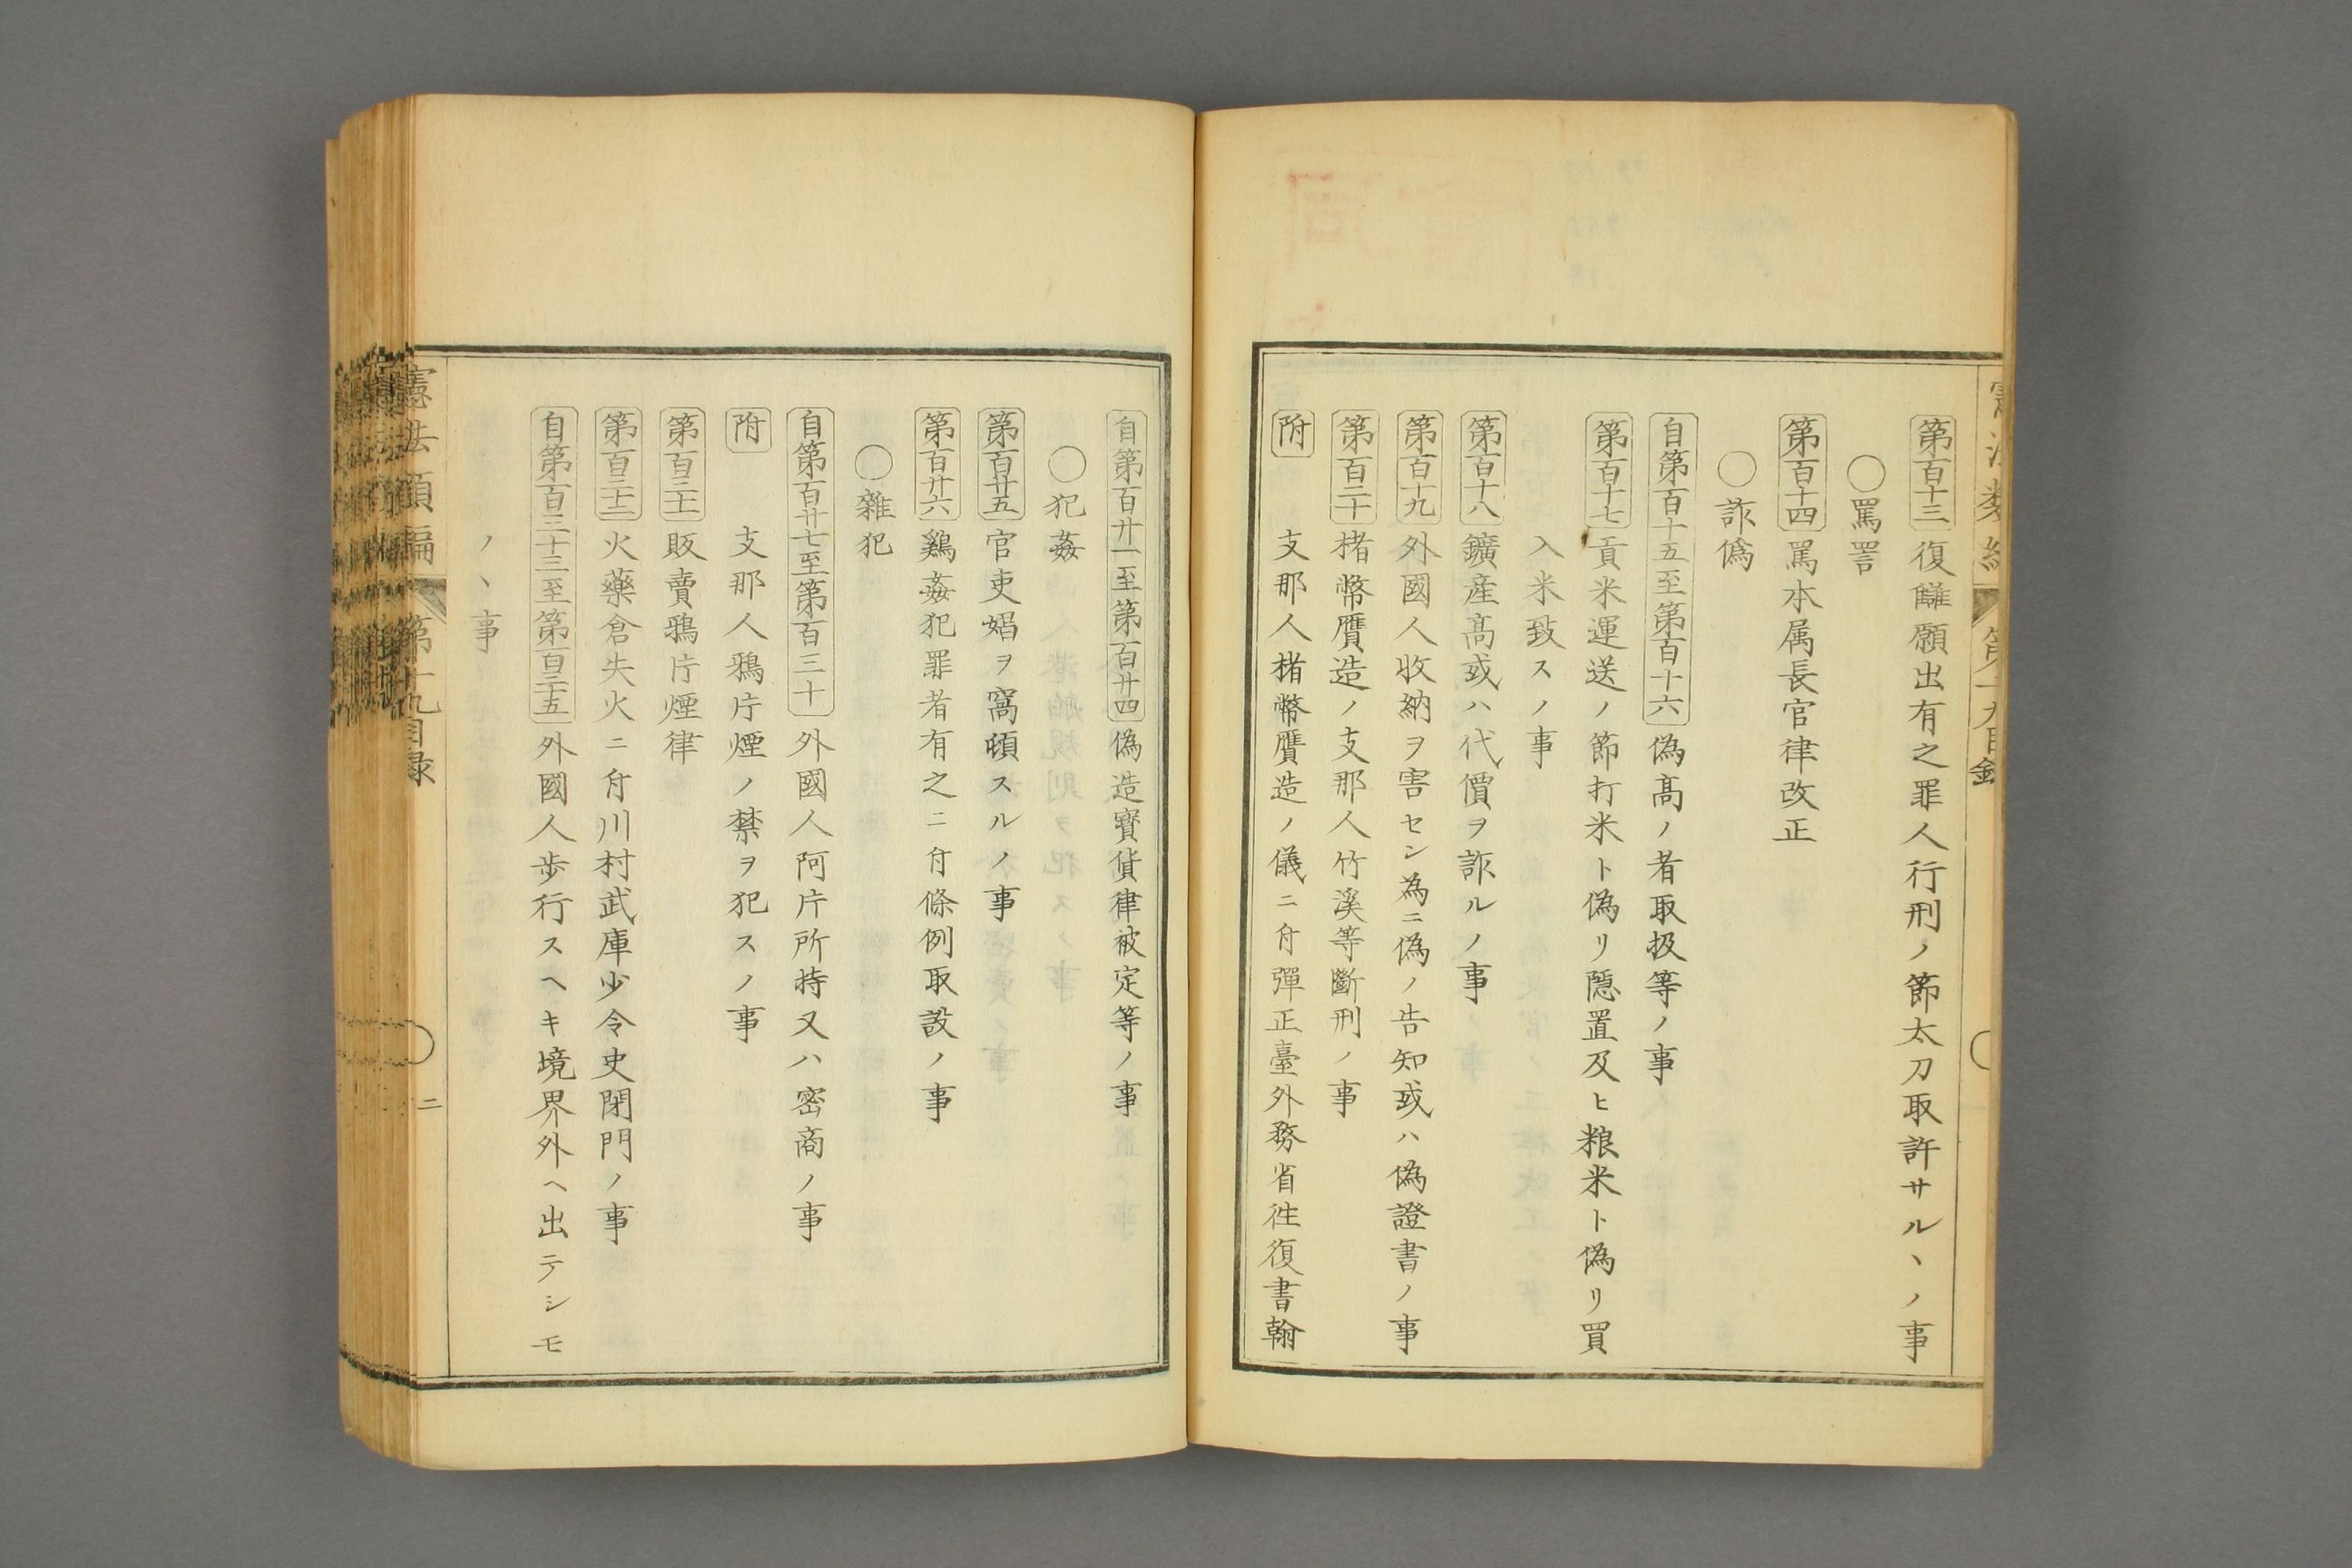 第百十三 復讎願出有之罪人行刑ノ節太刀取許サルヽノ事
〇罵詈
第百十四 罵本属長官律改正
〇詐僞
自第百十五至第百十六 偽髙ノ者取扱等ノ事
第百十七 貢米運送ノ節打米ト偽リ隠置及ヒ粮米ト偽リ買
入米致スノ事
第百十八 鑛産髙或ハ代價ヲ詐ルノ事
第百十九 外國人收納ヲ害セン為ニ偽ノ告知或ハ偽證書ノ事
第百二十 楮幣贋造ノ支那人竹溪等斷刑ノ事
附 支那人楮幣贋造ノ儀ニ付彈正臺外務省往復書翰
自第百廿一至第百廿四 偽造寳貨律被定等ノ事
〇犯姦
第百廿五 官吏娼ヲ窩頓スルノ事
第百廿六 鷄姦犯罪者有之ニ付條例取設ノ事
〇雜犯
自第百廿七至第百三十 外國人阿片所持又ハ密商ノ事
附 支那人鴉片煙ノ禁ヲ犯スノ事
第百三十一 販賣鴉片煙律
第百三十二 火藥倉失火ニ付川村武庫少令史閉門ノ事
自第百三十三至第百三十五 外國人歩行スヘキ境界外ヘ出テシモ
ノヽ事
憲法類編 第十九目録 二